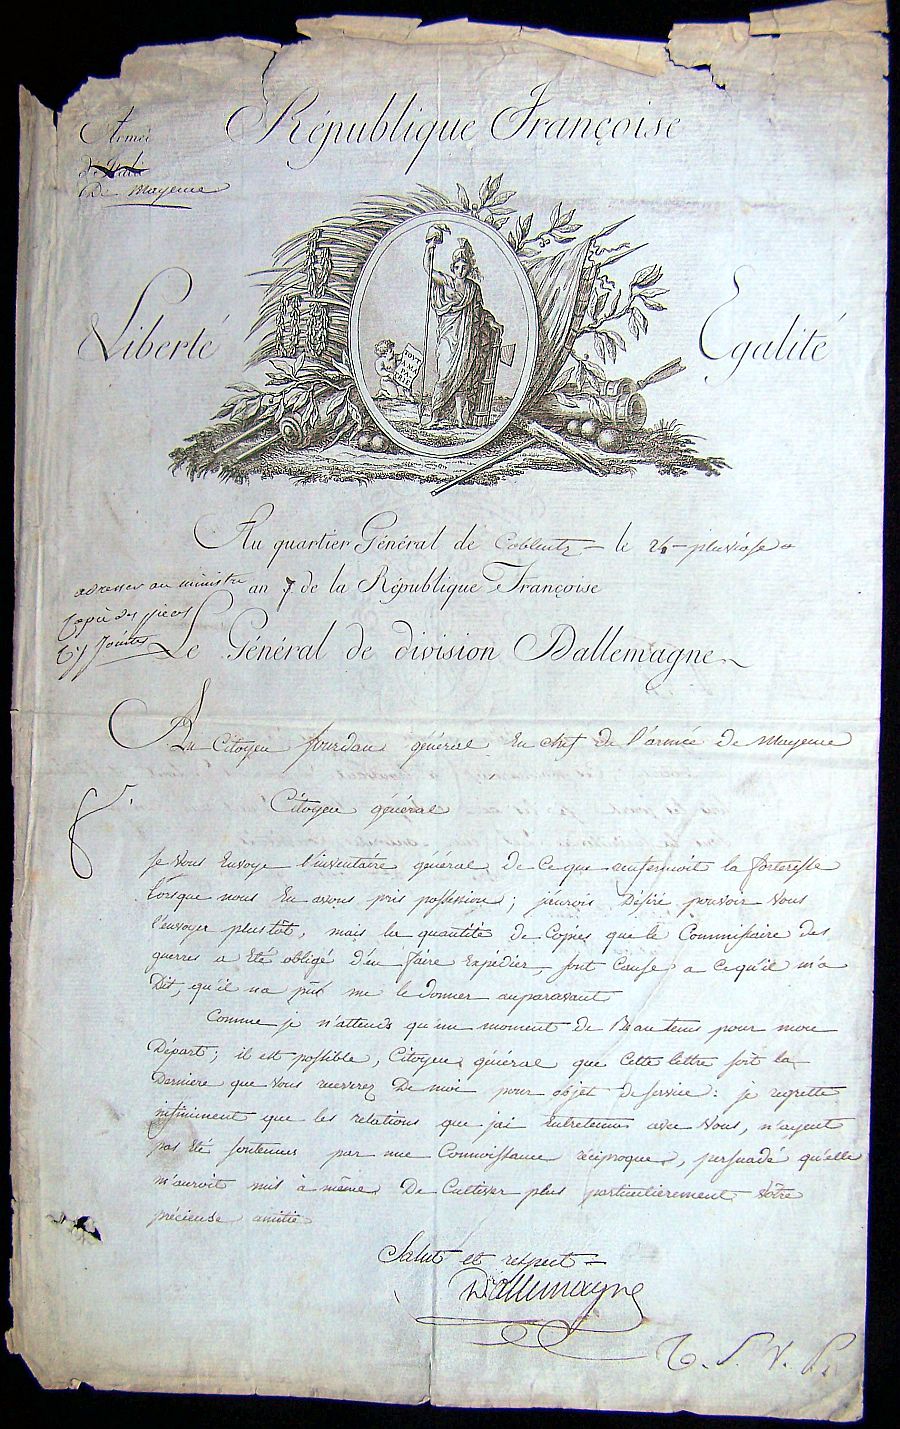 République Françoise
Armée
d'Italie
De Mayence
Liberté
Egalité
TOUT
A MA
PA
RIE
Au quartier Général de Coblentz le 24 pluviose
adresser au ministre
an 7 de la République Françoise
Copie des pièces
Cy Jointes
Le Général de division Dallemagne
Au Citoyen Jourdan général En chef de l'armée de Mayence
Citoyen général
Je vous Envoye l'inventaire général de Ce que renfermoit la forteresse
lorsque nous En avons pris possession; j'aurois Désiré pouvoir vous
l'envoyer plustôt, mais la quantité de Copies que le Commissaire des
guerres a été obligé d'en faire Expédier, sont Cause a Ce qu'il m'a
Dit, qu'il n'a pût me le donner auparavant
Comme je n'attends qu'un moment de Beau tems pour mon
Départ; il est possible, Citoyen général que Cette lettre soit la
Derniere que vous recevrez De moi pour objet de service: je regrette
infiniment que les relations que j'ai Entretenues avec Vous, n'ayent
pas été soutenues par une Connoissance réciproque, persuadé qu'elle
m'auroit mis à même De Cultiver plus particulierement Vôtre
précieuse amitié
Salut et respect
Dallemagne
T. S. V. P.